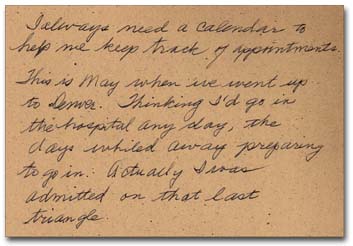 I always need a calendar to
help me keep track of appointments.
This is May when we went up
to Denver. Thinking I'd go in
the hospital any day, the
days whiled away preparing
to go in. Actually I was
admitted on that last
triangle.